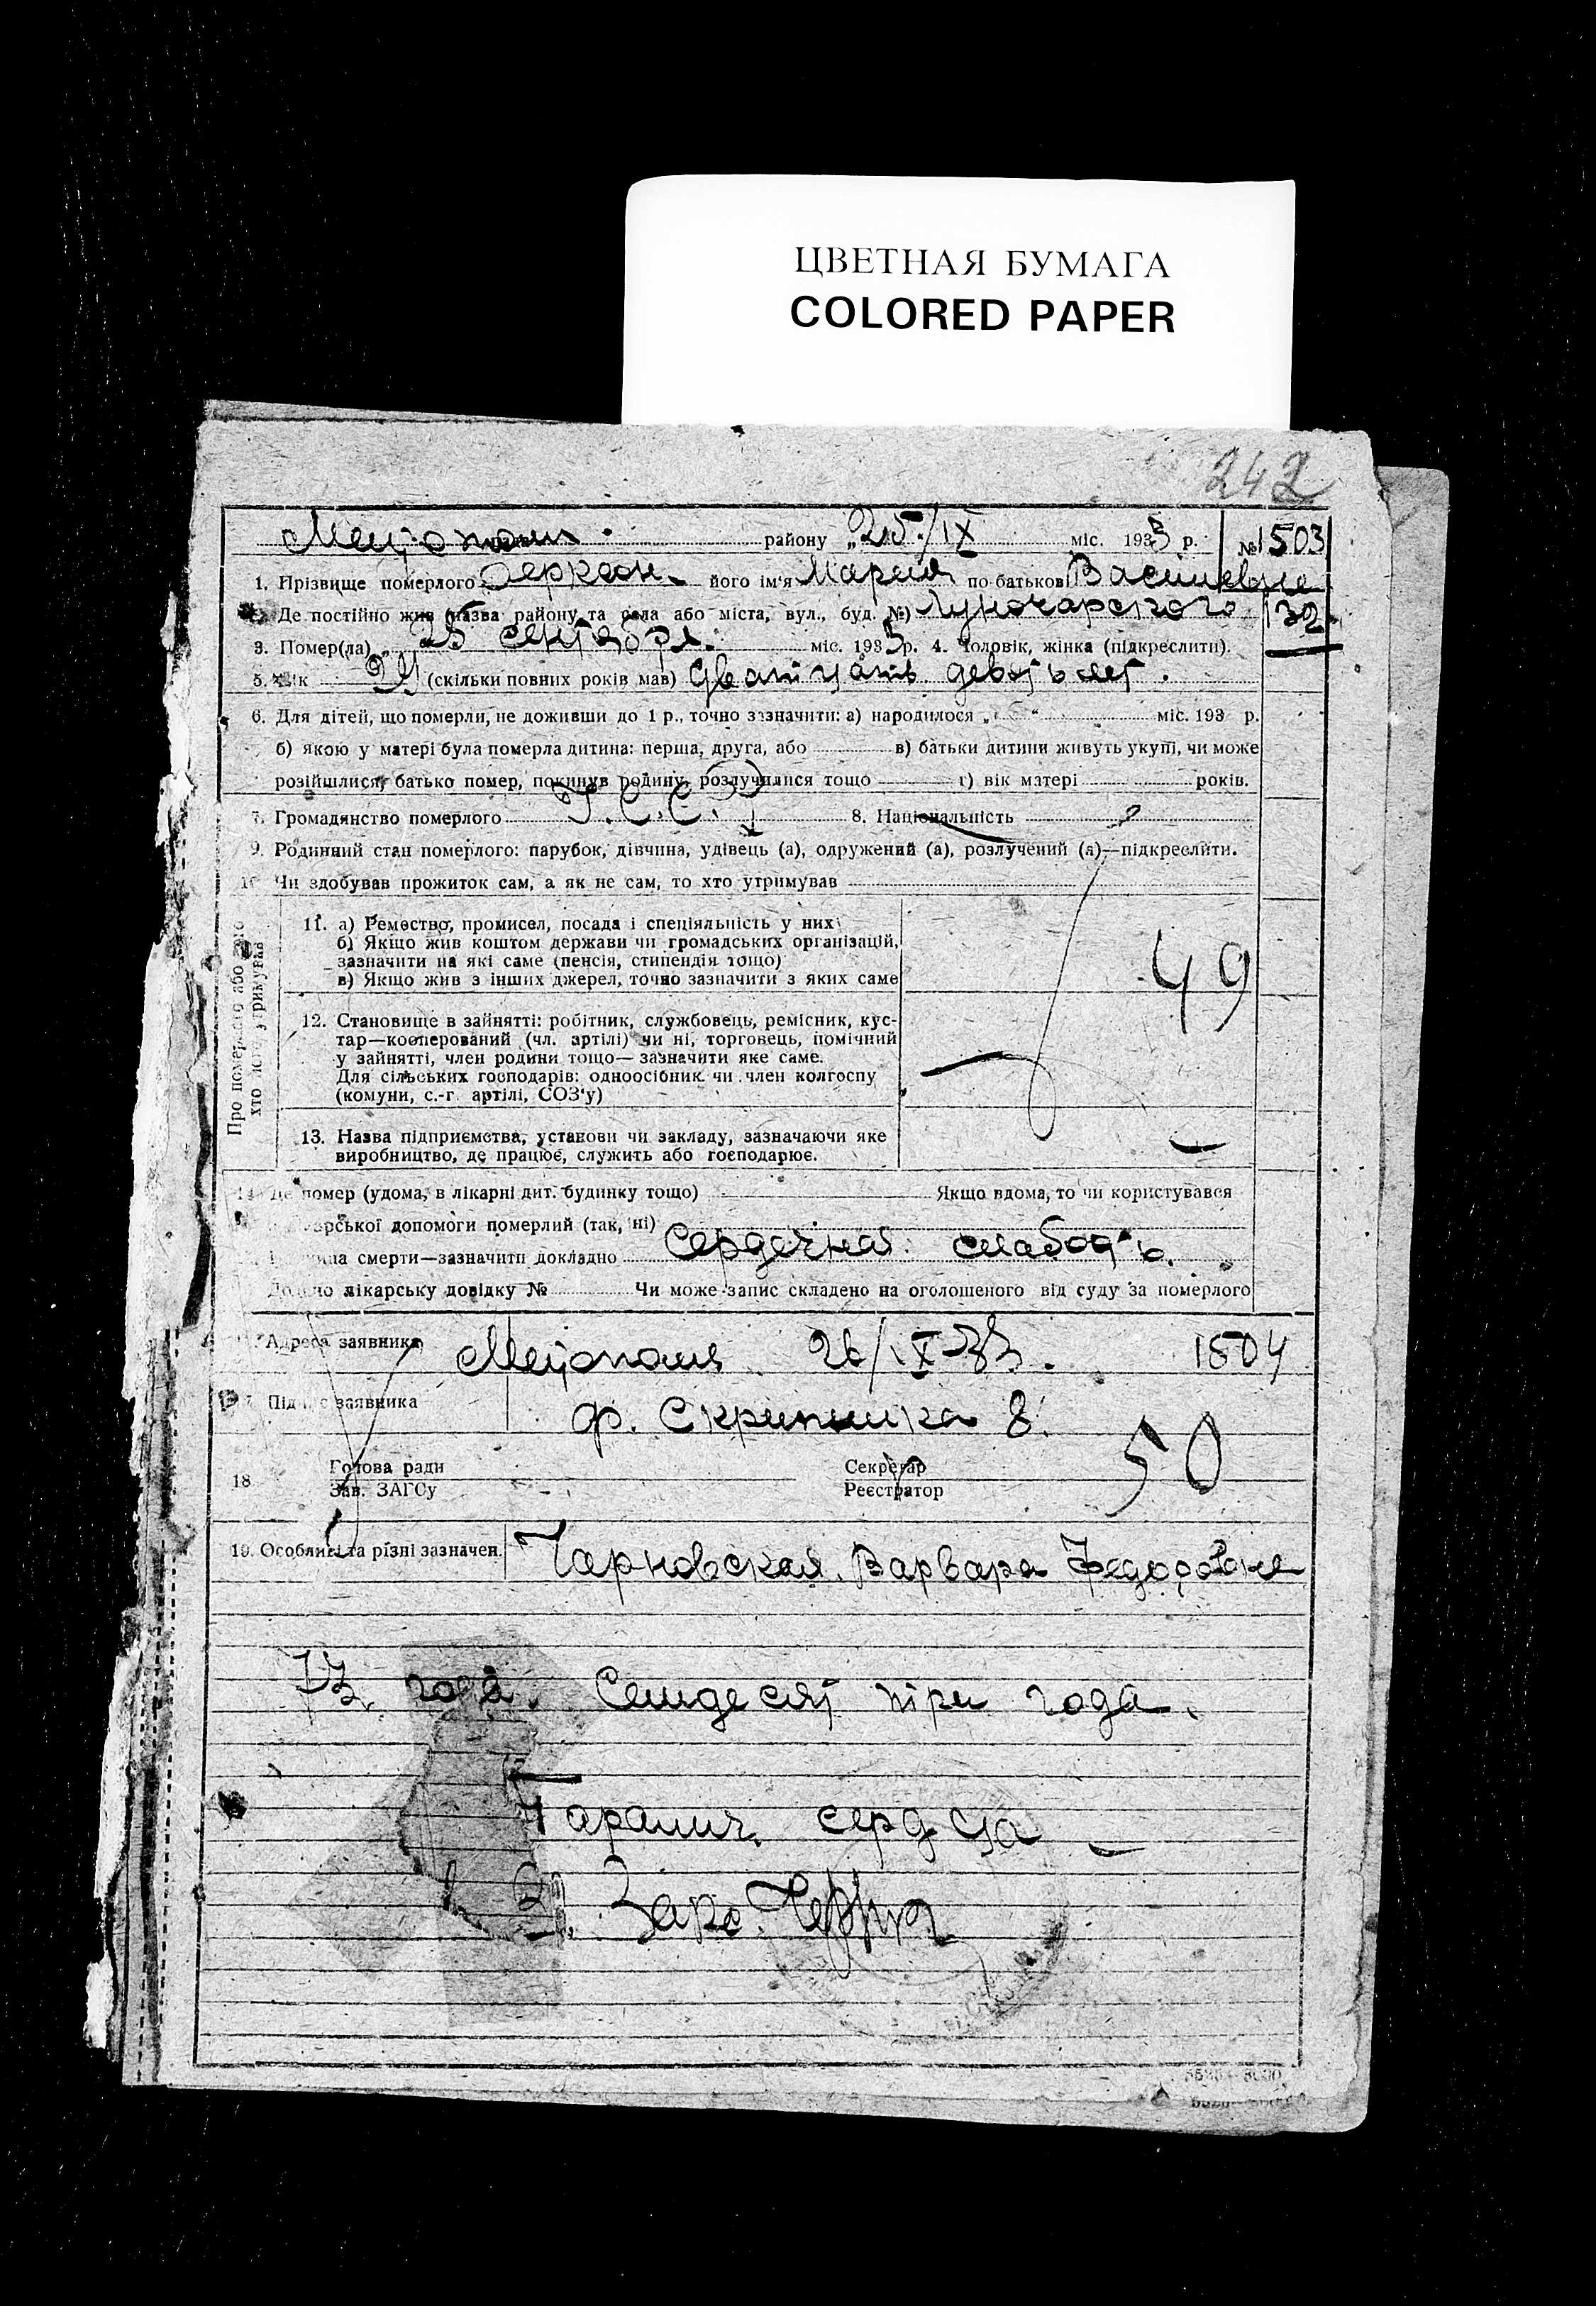 ЦВЕТНАЯ БУМАГА
COLORED PAPER
242
району „25/IX міс. 1933 р. № 1503
1. Прізвище померлого його ім'я Мария по батькові Василевне
Де постійно жив (назва району та села або міста, вул., буд. №) Луночарского 132
3. Помер(ла) „25 міс. 1933 р. 4. Чоловік, жінка (підкреслити).
5. Вік 29 (скільки повних років мав) двати цать девять лет.
6. Для дітей, що померли, не доживши до 1 р., точно зазначити: а) народилося „ “ міс. 193 р.
б) якою у матері була померла дитина: перша, друга, або в) батьки дитини живуть укупі, чи може
розійшлися, батько помер, покинув родину, розлучилися тощо г) вік матері років.
7. Громадянство померлого 8. Національність
9. Родинний стан померлого: парубок, дівчина, удівець (а), одружений (а), розлучений (а)—підкреслити.
10 Чи здобував прожиток сам, а як не сам, то хто утримував
Про померлого або того
хто його утримував
11. а) Ремество, промисел, посада і спеціяльність у них
б) Якщо жив коштом держави чи громадських організацій,
зазначити на які саме (пенсія, стипендія тощо)
в) Якщо жив з інших джерел, точно зазначити з яких саме
49
12. Становище в зайнятті: робітник, службовець, ремісник, кус-
тар—кооперований (чл. артілі) чи ні, торговець, помічний
у зайнятті, член родини тощо— зазначити яке саме.
Для сільських господарів: одноосібник чи член колгоспу
(комуни, с.-г. артілі, СОЗ'у)
13. Назва підприємства, установи чи закладу, зазначаючи яке
виробництво, де працює, служить або господарює.
14. Де помер (удома, в лікарні дит. будинку тощо) Якщо вдома, то чи користувався
лікарської допомоги померлий (так, ні)
смерти—зазначити докладно Сердечная слабость
лікарську довідку № Чи може запис складено на оголошеного від суду за померлого
Адреса заявника 26/IX 33. 1504
Підпис заявника ф. Скрипника 8.
50
18 Голова ради
Зав. ЗАГСу
Секретар
Реєстратор
19. Особливі та різні зазначен. Чарновская Варвара Федоровне
73 года. Семдесят три года.
Паралич сердца
Загс